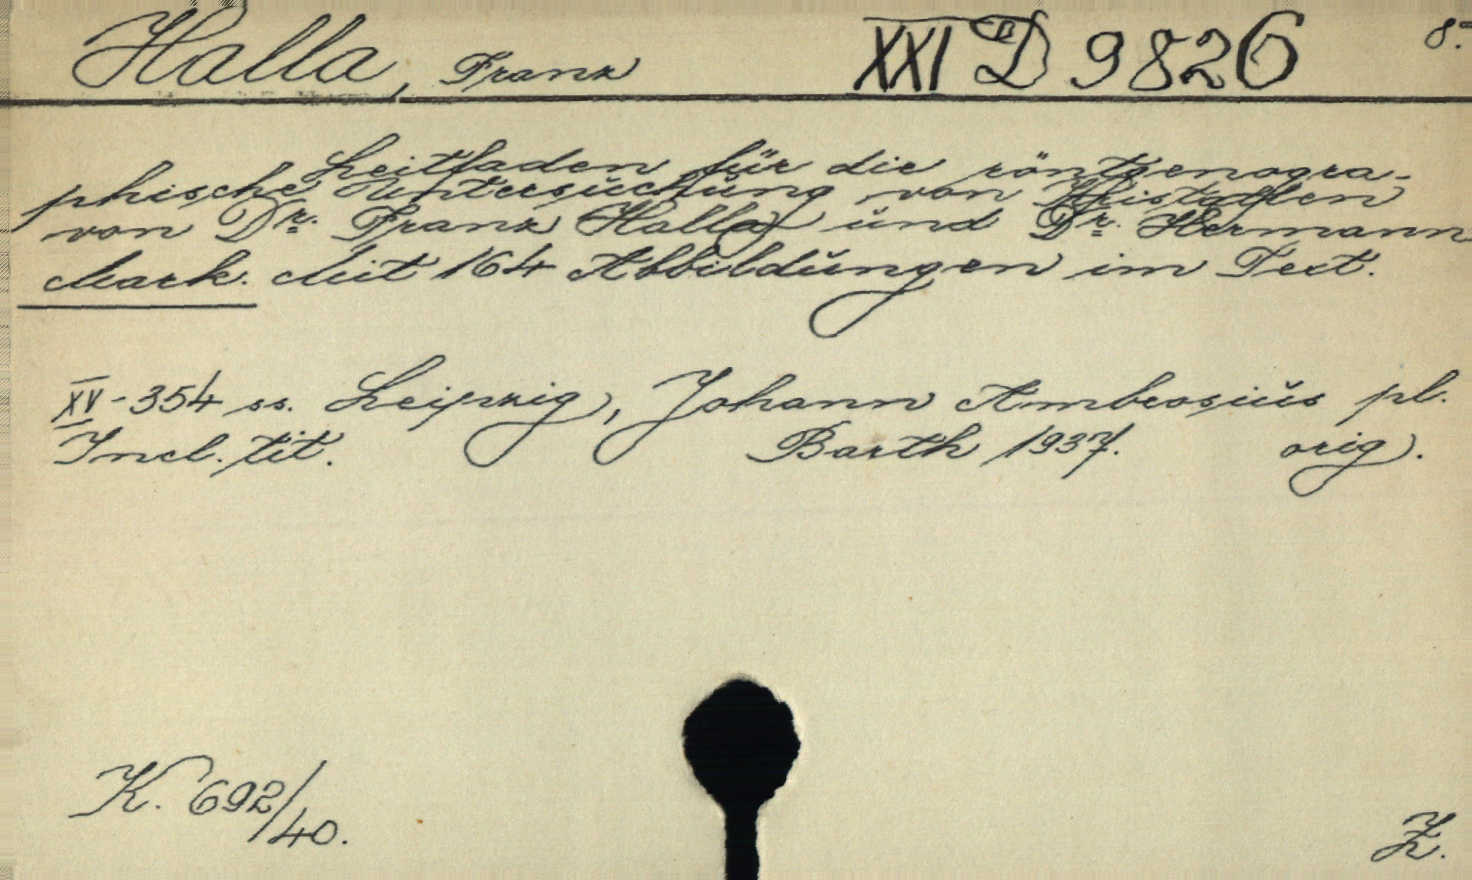 Halla, Franz XXI D 9826 8.°
Leitfaden für die röntgenogra-
phische Untersuchung von Kristallen
von Dr. Franz Halla und Dr. Hermann
Mark. Mit 164 Abbildungen im Text.
XV-354 ss. Leipzig, Johann Ambrosius pl.
Incl. tit. Barth 1937. orig.
K. 692/40.
Z.